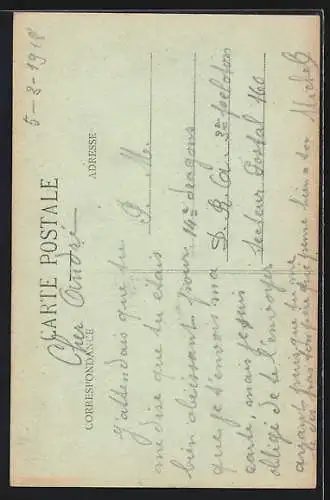 5-3-1918
CARTE POSTALE
CORRESPONDANCE
ADRESSE
Cher André
j'attendais que tu
me dise que tu étais
bien obéissant pour
que je t'envois ma
carte, mais je suis
obligé de te l'envoyer
avant puisque tu ne
le dis pas
Michel
P. M.
14e dragons
3e peloton
Secteur Postal 160